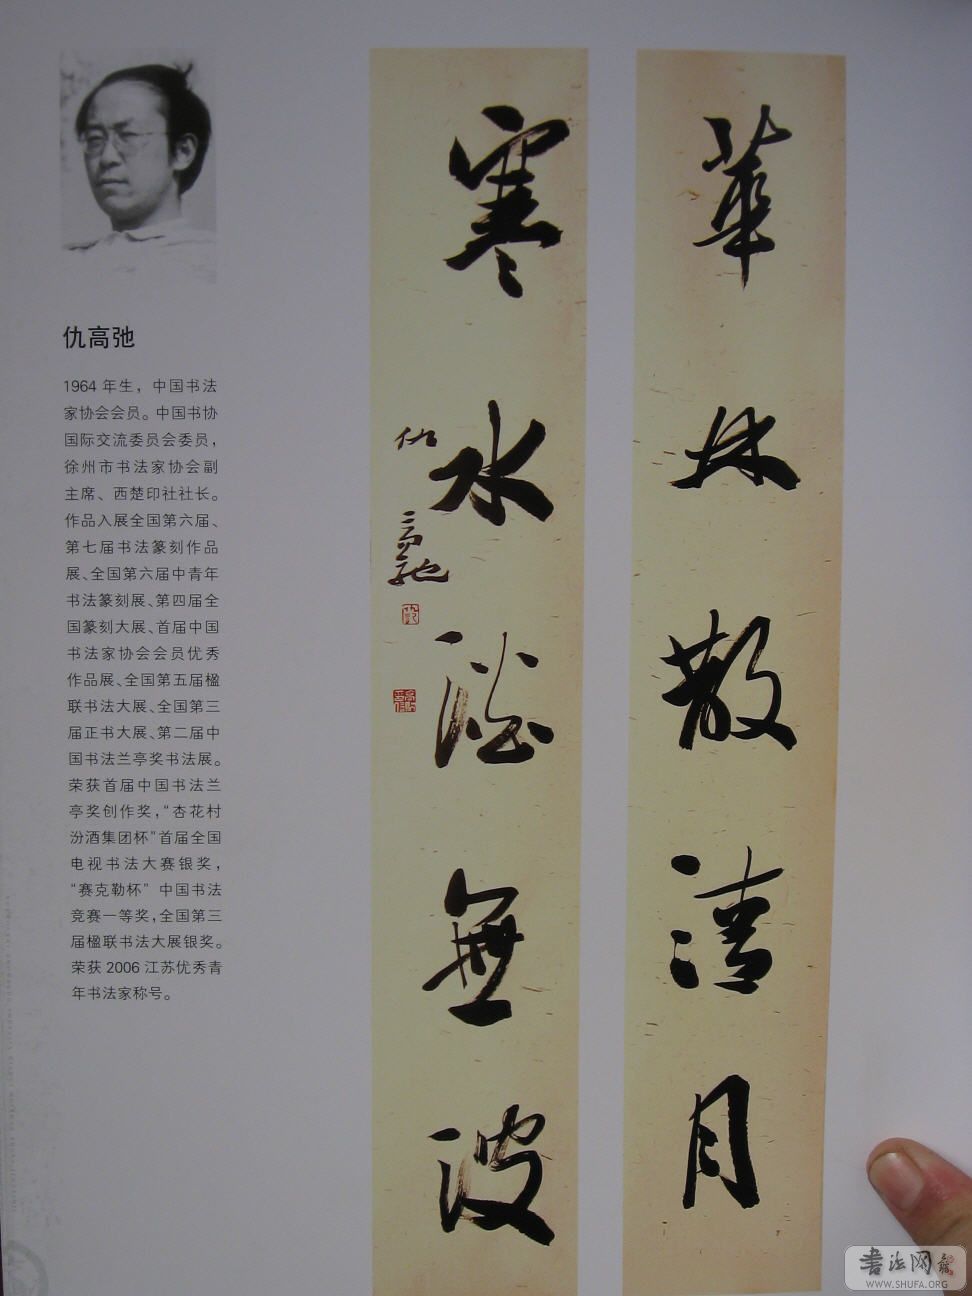 華林散清月
寒水澹無波
仇高弛
仇高弛
1964 年生，中国书法
家协会会员。中国书协
国际交流委员会委员，
徐州市书法家协会副
主席、西楚印社社长。
作品入展全国第六届、
第七届书法篆刻作品
展、全国第六届中青年
书法篆刻展、第四届全
国篆刻大展、首届中国
书法家协会会员优秀
作品展、全国第五届楹
联书法大展、全国第三
届正书大展、第二届中
国书法兰亭奖书法展。
荣获首届中国书法兰
亭奖创作奖，“杏花村
汾酒集团杯”首届全国
电视书法大赛银奖，
“赛克勒杯” 中国书法
竞赛一等奖，全国第三
届楹联书法大展银奖。
荣获 2006 江苏优秀青
年书法家称号。
书法网
WWW.SHUFA.ORG